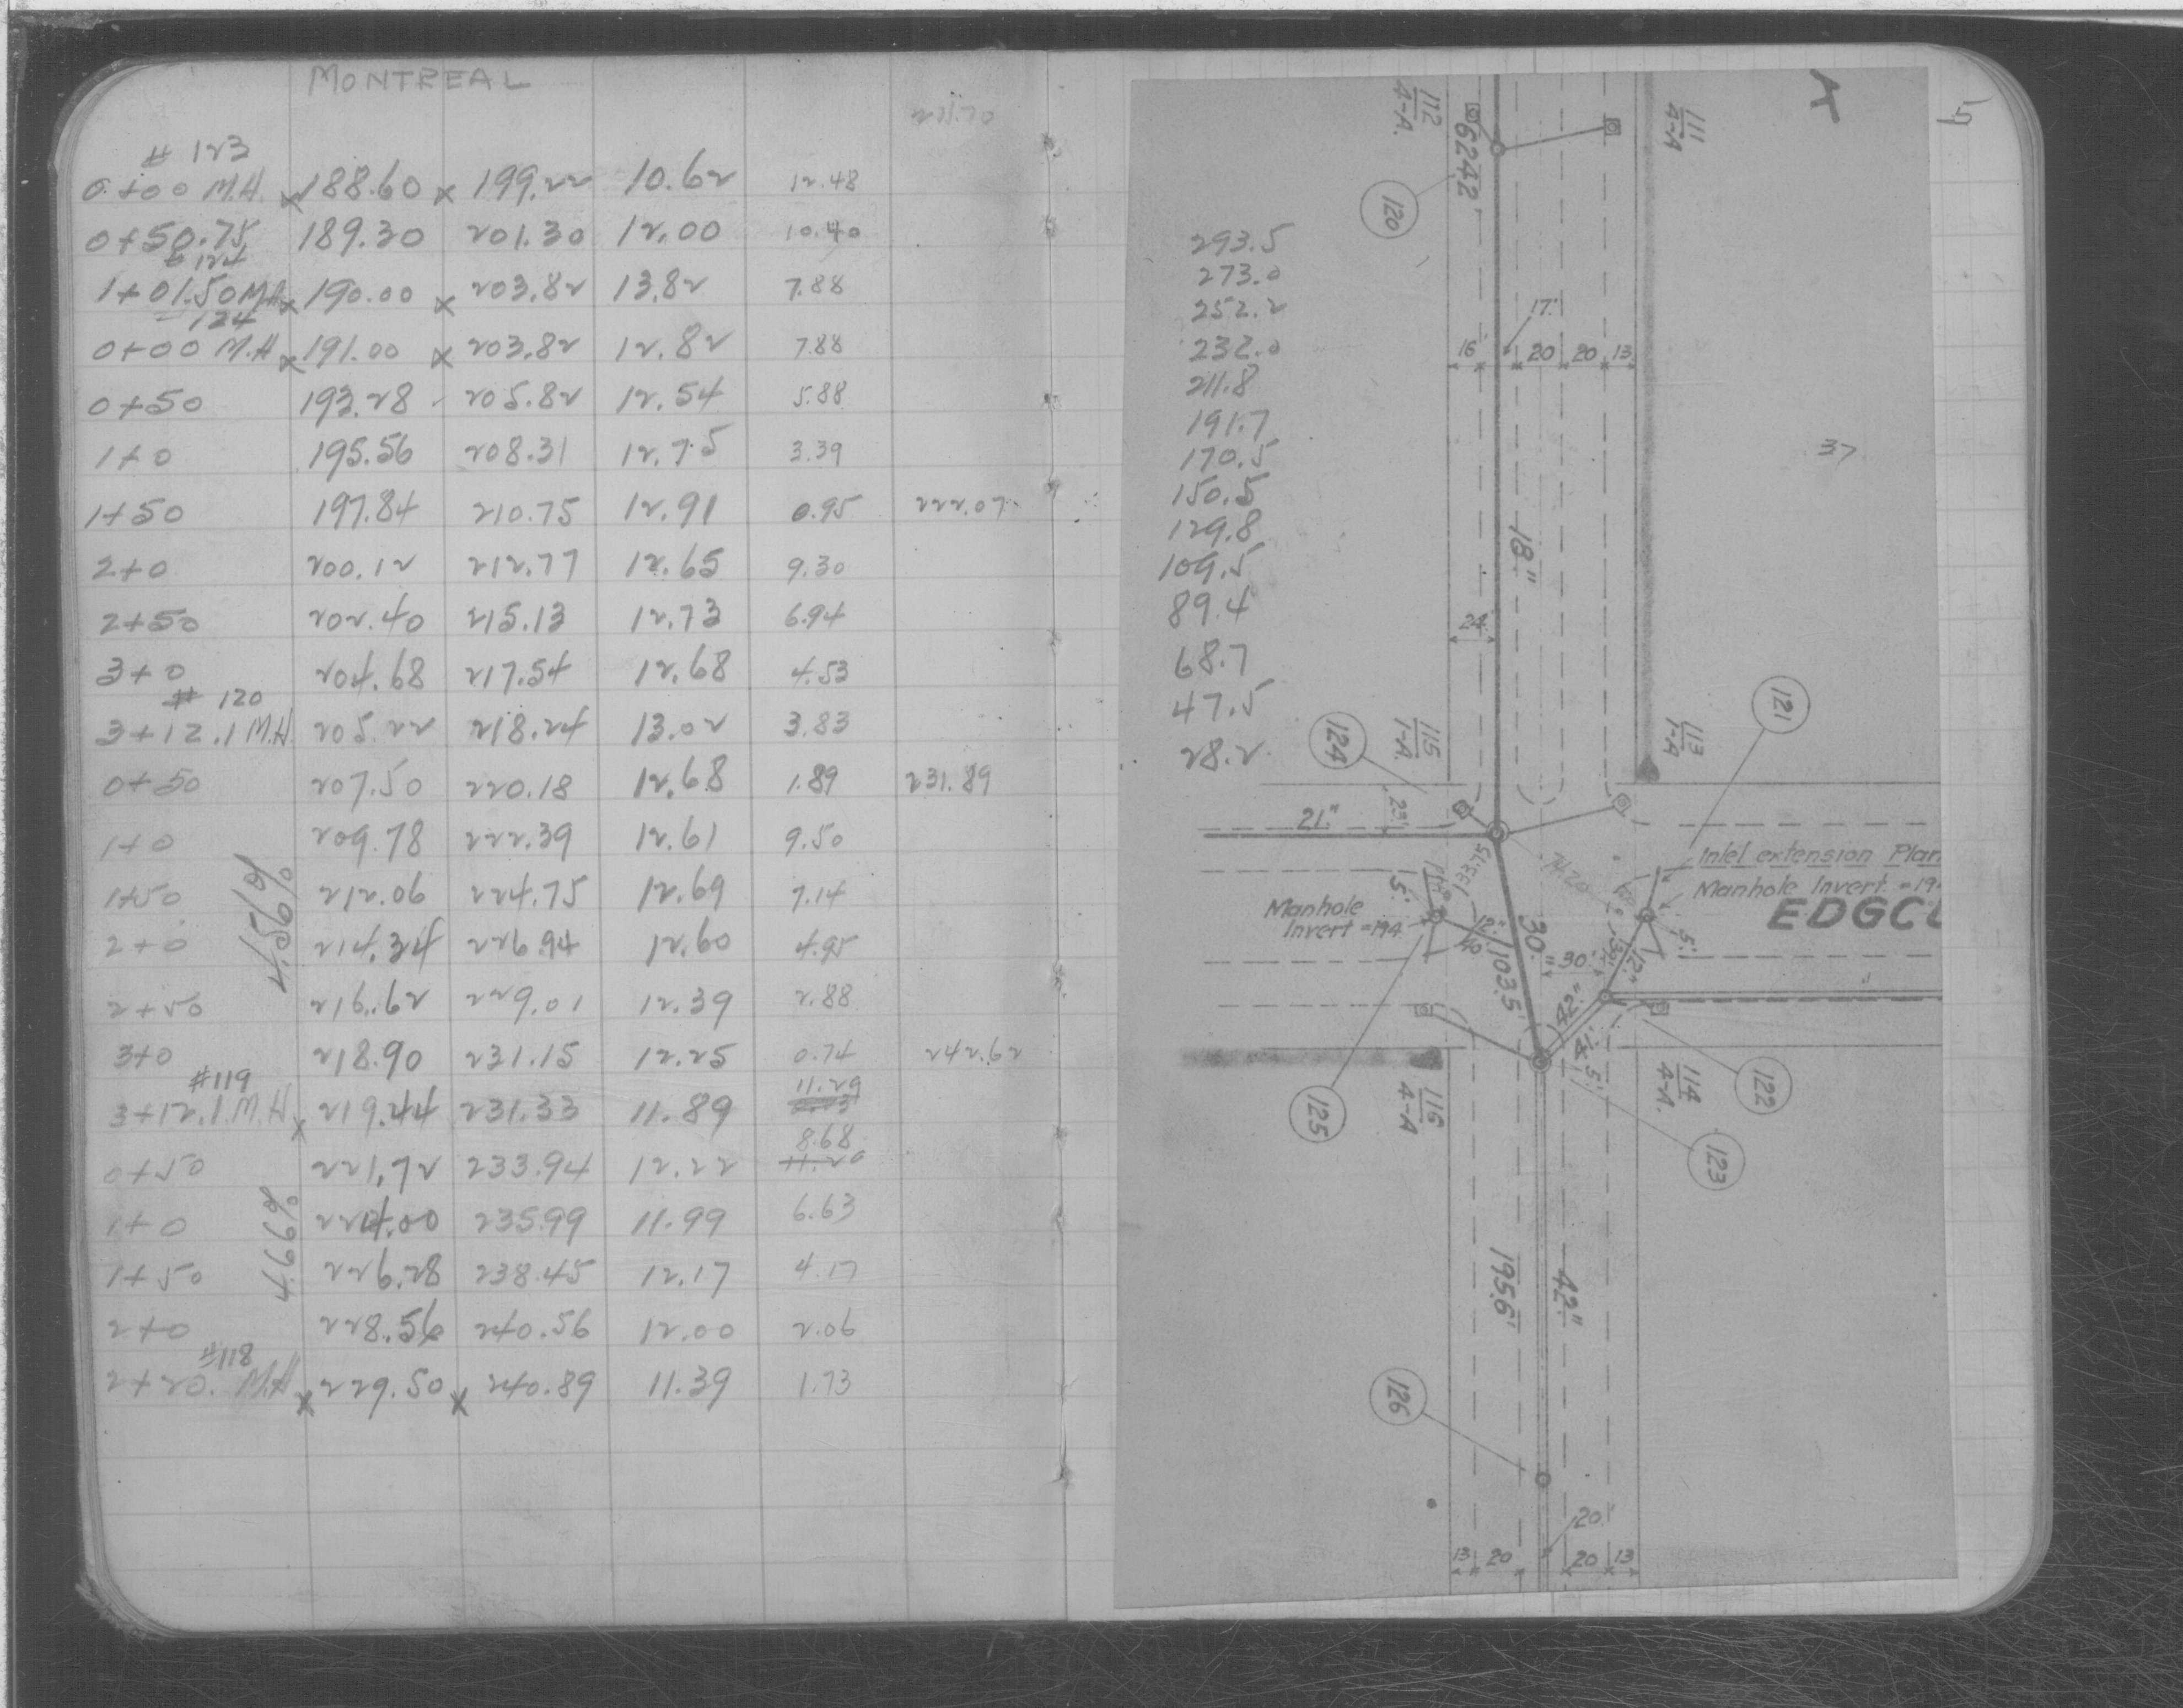 MONTREAL
# 123
0+00 M.H. x 188.60 x 199.22 10.62 12.48
0+50.75 189.30 201.30 12.00 10.40
# 124
1+01.50 M.H. x 190.00 x 203.82 13.82 7.88
124
0+00 M.H x 191.00 x 203.82 12.82 7.88
0+50 193.28 205.82 12.54 5.88
1+0 195.56 208.31 12.75 3.39
1+50 197.84 210.75 12.91 0.95 222.07
2+0 200.12 212.77 12.65 9.30
2+50 202.40 215.13 12.73 6.94
3+0 204.68 217.54 12.68 4.53
# 120
3+12.1 M.H. 205.22 218.24 13.02 3.83
0+50 207.50 220.18 12.68 1.89 231.89
1+0 209.78 222.39 12.61 9.50
1+50 212.06 224.75 12.69 7.14
2+0 214.34 226.94 12.60 4.95
2+50 216.62 229.01 12.39 2.88
3+0 218.90 231.15 12.25 0.74 242.62
#119 11.29
3+12.1 M.H. x 219.44 231.33 11.89
8.68
0+50 221.72 233.94 12.22 11.20
1+0 224.00 235.99 11.99 6.63
1+50 226.28 238.45 12.17 4.17
2+0 228.56 240.56 12.00 2.06
#118
2+20. M.H x 229.50 x 240.89 11.39 1.73
4.56%
4.66%
5
293.5
273.0
252.2
232.0
211.8
191.7
170.5
150.5
129.8
109.5
89.4
68.7
47.5
28.2
37
112
4-A.
111
4-A
624.2'
120
17'
16 20 20 13
18"
24
115
1-A.
113
1-A
121
124
21"
23'
Inlet extension Plan
Manhole Invert = 19
EDGC
Manhole
Invert = 194.
5'
12"
40'
30"
103.5'
30'
12"
5'
42"
125
116
4-A
114
4-A.
122
123
195.6'
42"
126
20'
13 20 20 13